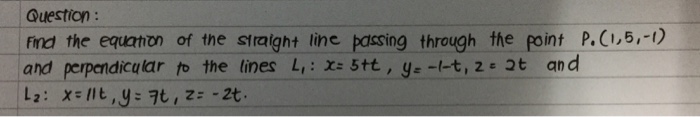 Question:
Find the equation of the straight line passing through the point P.(1,5,-1)
and perpendicular to the lines L₁: x= 5+t, y= -1-t, z= 2t and
L₂: x= 11t, y= 7t, z= -2t.